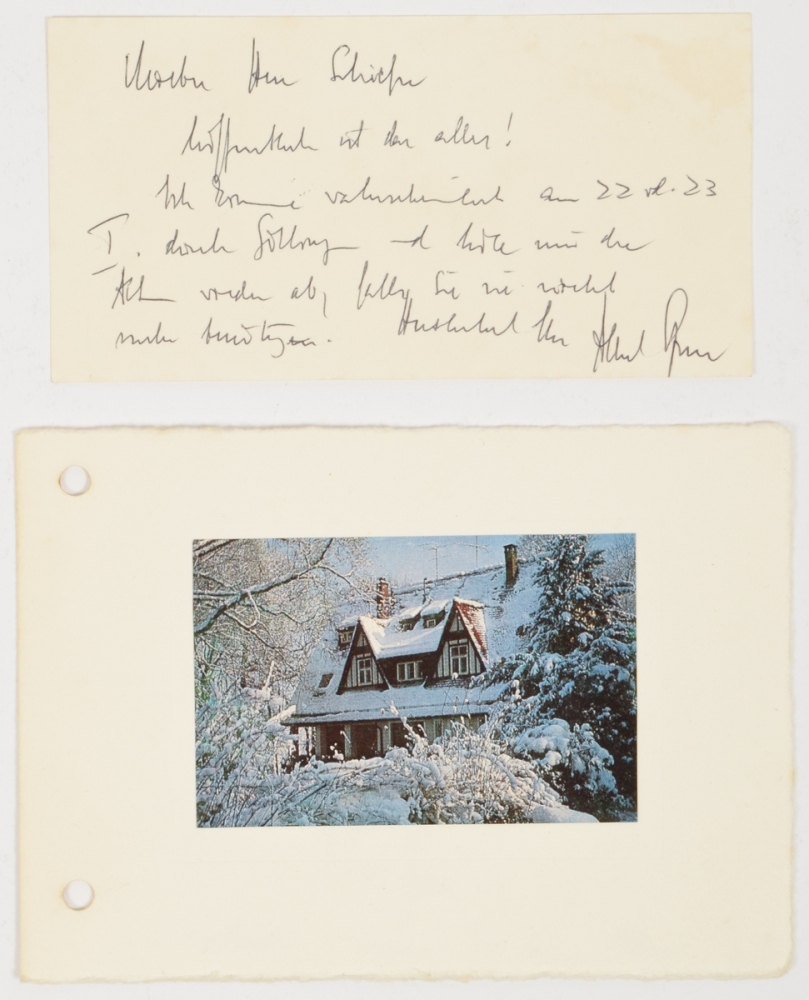 Lieber Herr Schäfer
hoffentlich ist das alles!
Ich komme wahrscheinlich am 22 od. 23
I. durch Göttingen und hole mir die
wieder ab, falls Sie sie nicht
mehr benötigen. Herzlichst Ihr Albert